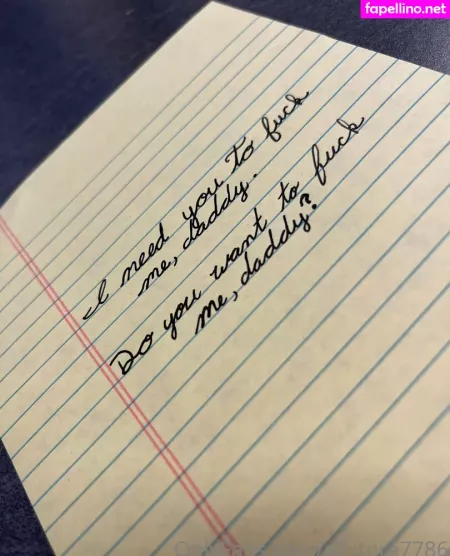 fapellino.net
I need you to fuck
me, daddy.
Do you want to fuck
me, daddy?